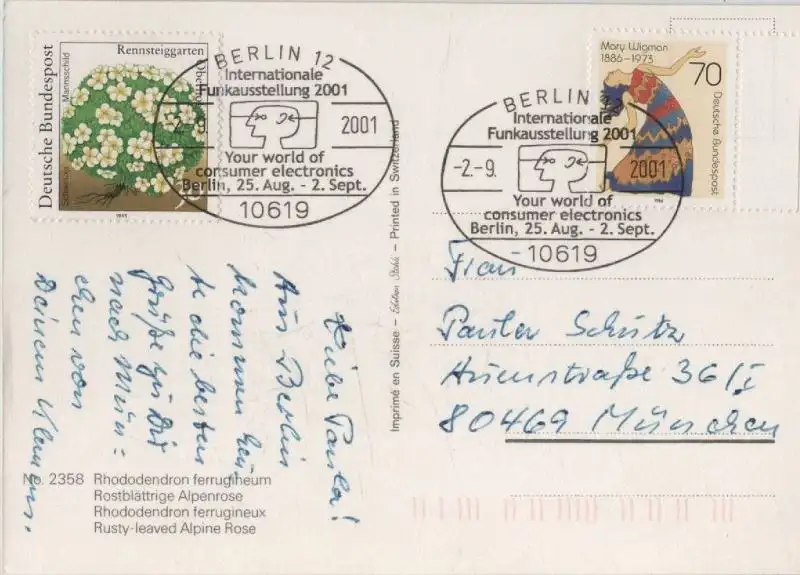 Deutsche Bundespost
Rennsteiggarten
Oberhof
Mannsschild
1995
BERLIN 12
Internationale
Funkausstellung 2001
-2.-9. 2001
Your world of
consumer electronics
Berlin, 25. Aug. - 2. Sept.
10619
BERLIN 12
Internationale
Funkausstellung 2001
-2.-9. 2001
Your world of
consumer electronics
Berlin, 25. Aug. - 2. Sept.
10619
Mary Wigman
1886-1973
70
Deutsche Bundespost
1986
Liebe Paula!
Aus Berlin
kommen heu-
te die besten
Grüße zu Dir
nach Mün=
chen von
Deinem Klemens.
Imprimé en Suisse – Edition Stehli – Printed in Switzerland
Frau
Paula Schütz
Auenstraße 36/I
80469 München
No. 2358 Rhododendron ferrugineum
Rostblättrige Alpenrose
Rhododendron ferrugineux
Rusty-leaved Alpine Rose